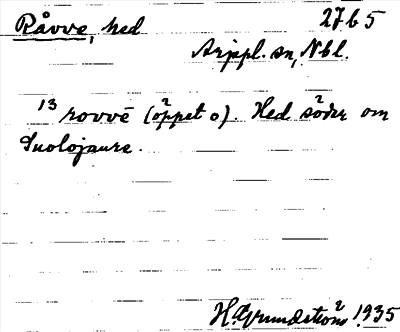 Råvve, hed 27 b 5
Arjepl. sn, Nbl.
13 rovvē (öppet o). Hed söder om
Suolojaure.
H. Grundström 1935